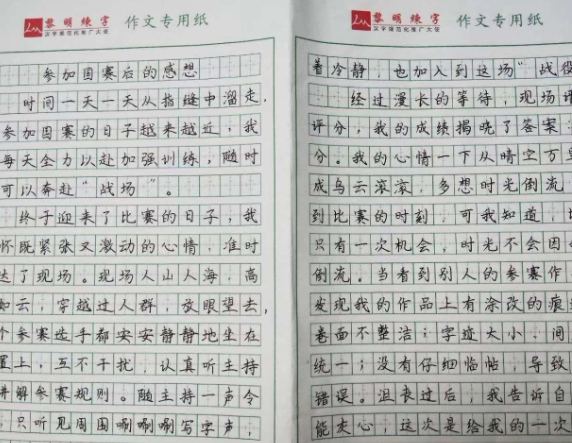 黎明练字 作文专用纸
汉字规范化推广大使
参加国赛后的感想
时间一天一天从指缝中溜走,
参加国赛的日子越来越近,我
每天全力以赴加强训练,随时
可以奔赴“战场”。
终于迎来了比赛的日子,我
怀既紧张又激动的心情,准时
达了现场。现场人山人海,高
如云;穿越过人群,放眼望去,
个参赛选手都安安静静地坐在
置上,互不干扰,认真听主持
讲解参赛规则。随主持一声令
,只听见周围唰唰唰写字声,
黎明练字 作文专用纸
汉字规范化推广大使
着冷静,也加入到这场“战役
经过漫长的等待,现场评
评分,我的成绩揭晓了答案:
分。我的心情一下从晴空万里
成乌云滚滚,多想时光倒流
到比赛的时刻,可我知道,
只有一次机会,时光不会因
倒流。当看到别人的参赛作
发现我的作品上有涂改的痕
卷面不整洁;字迹大小、间
统一;没有仔细临帖,导致
错误。沮丧过后,我告诉自
能灰心;这次是给我的一次